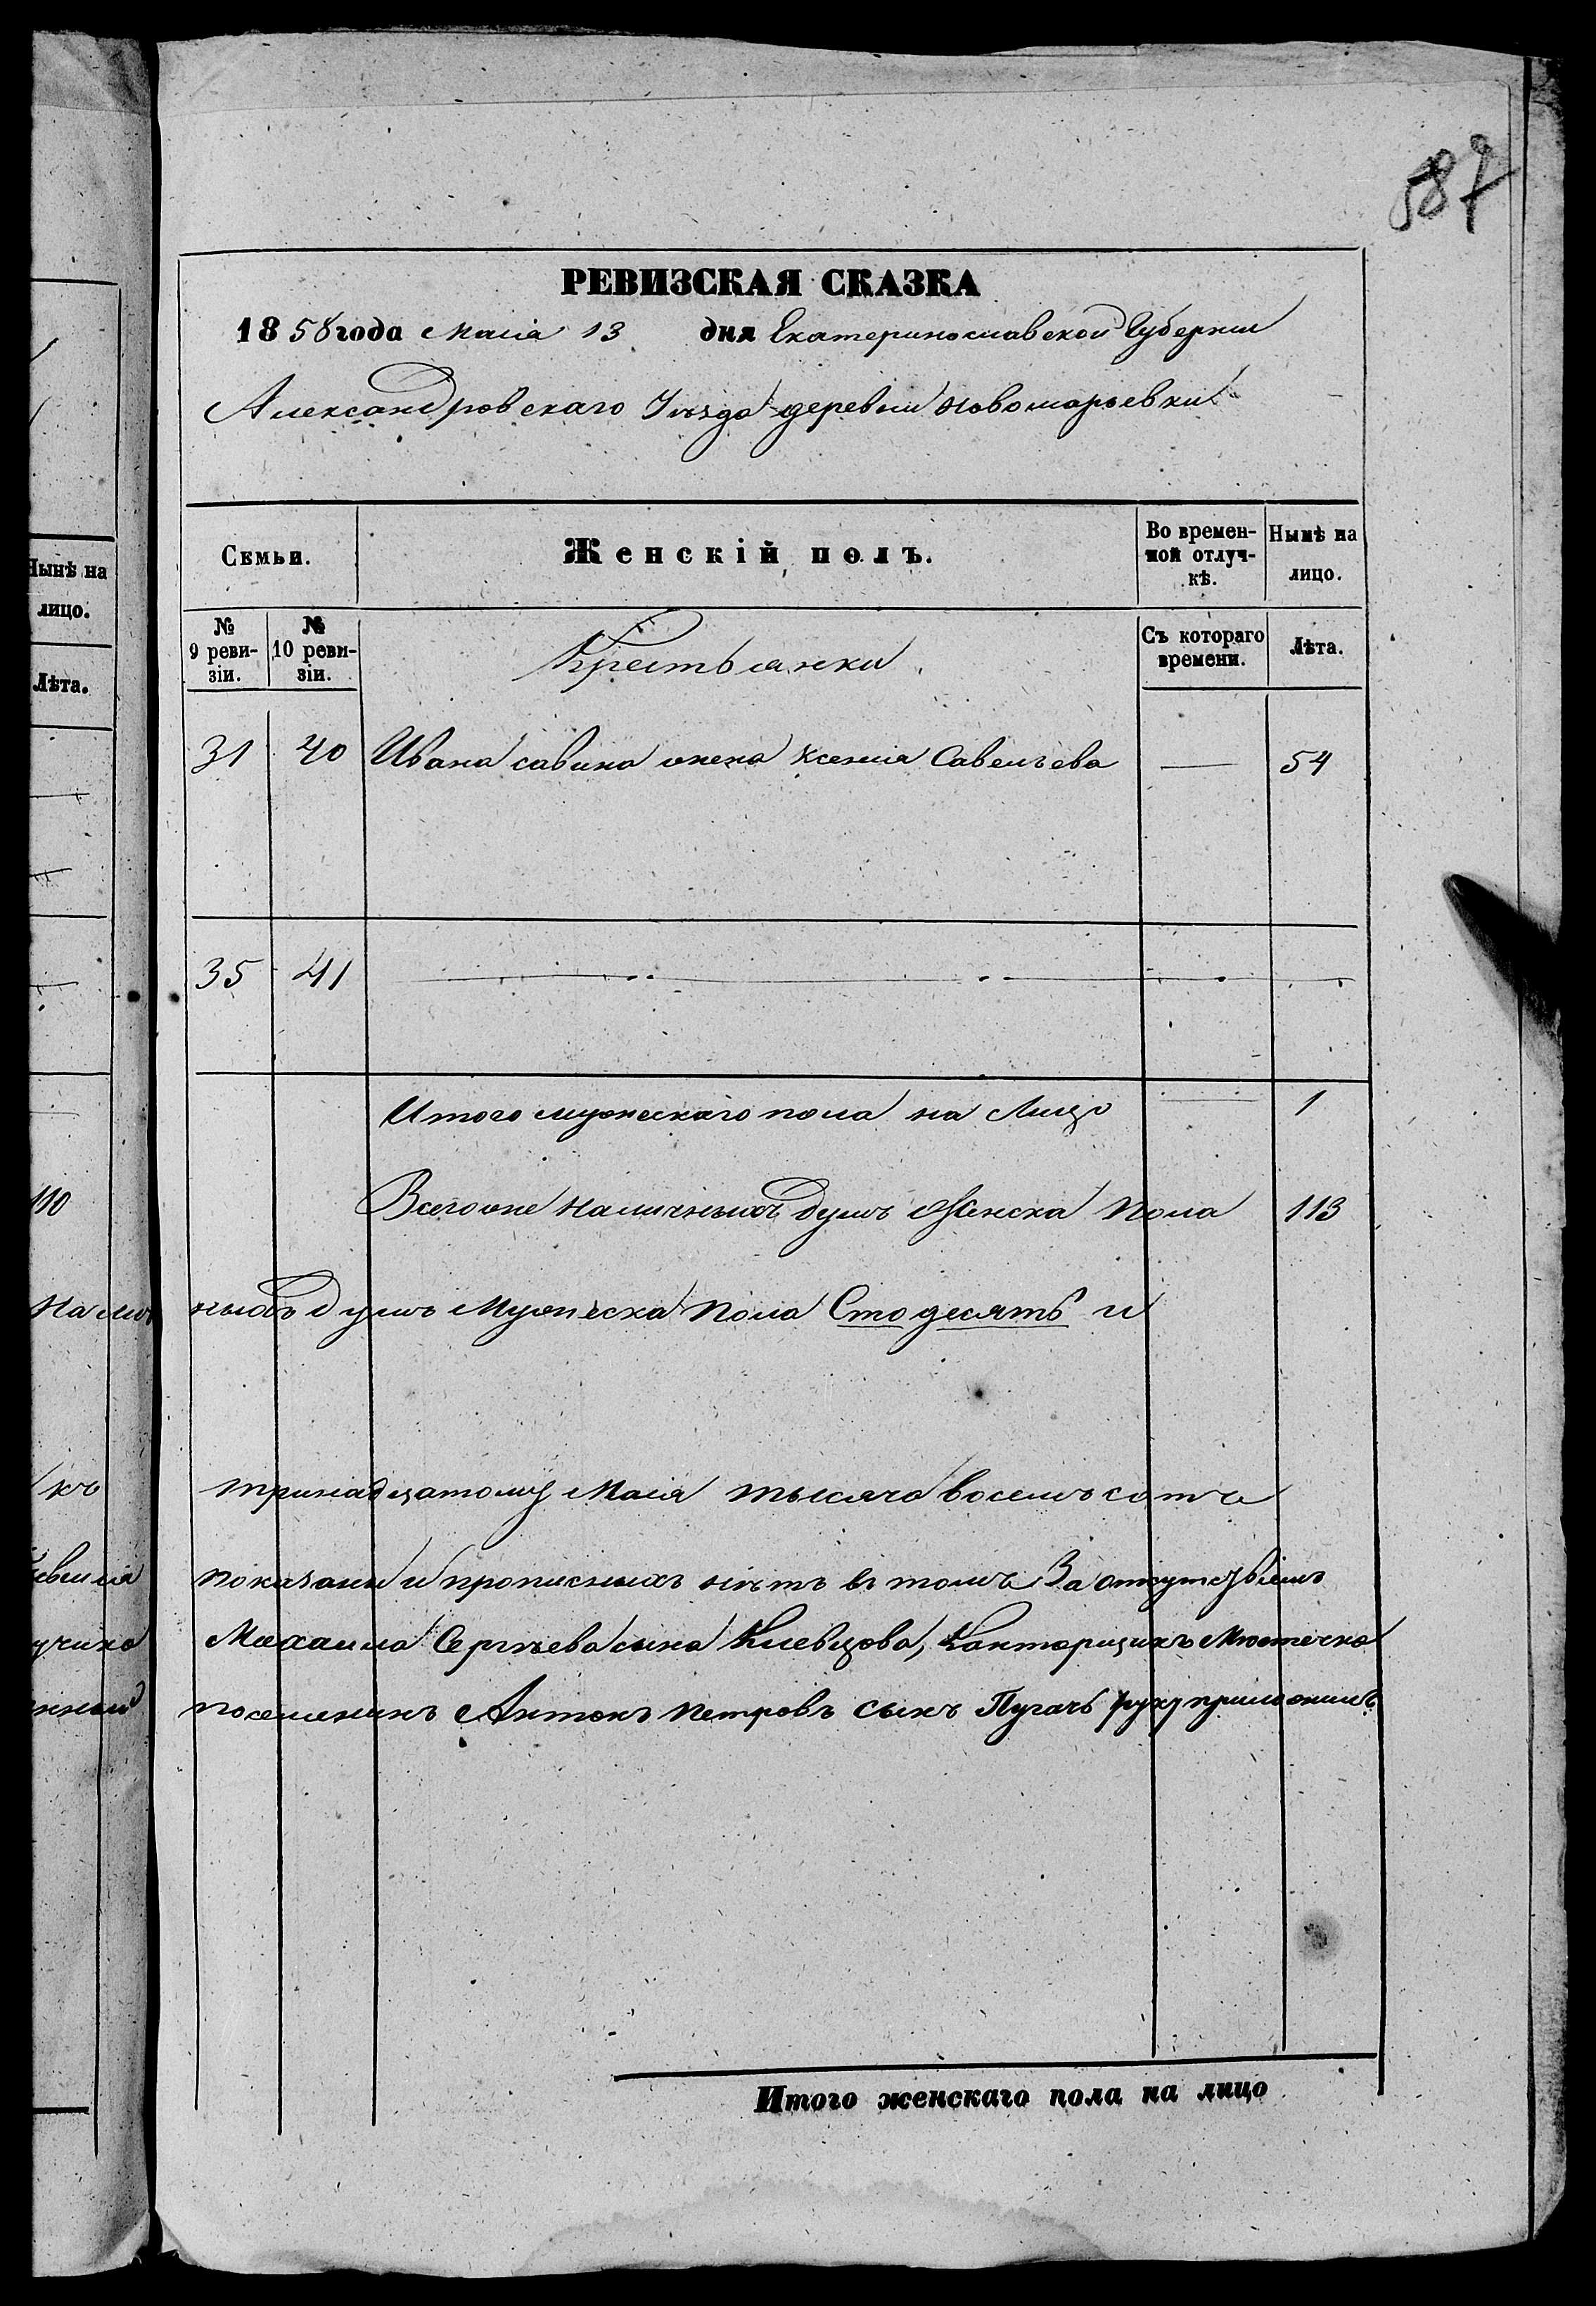 587
РЕВИЗСКАЯ СКАЗКА
1858 года Маія 13 дня Екатеринославской Губерніи
Александровскаго Уѣзда деревни Новомарьевки
Нынѣ на лицо.
Лѣта.
Семьи.
Женскій полъ.
Во времен-
ной отлуч-
кѣ.
Нынѣ на
лицо.
№
9 реви-
зіи.
№
10 реви-
зіи.
Крестьянки
Съ котораго
времени.
Лѣта.
31 40 Ивана Савина жена Ксенія Савельева — 54
35 41
Итого мужескаго пола на Лицо — 1
110
Всего же наличныхъ душъ Женска Пола 113
ныхъ душъ Мужеска Пола Сто десять и
къ
тринадцатому Маія тысяча восемь сотъ
показаны и прописныхъ нѣтъ въ томъ За отсутствіемъ
Михаила Сергѣева сына Клевцова,
поселенинъ Антонъ Петровъ сынъ Пугачь руку приложилъ
Итого женскаго пола на лицо